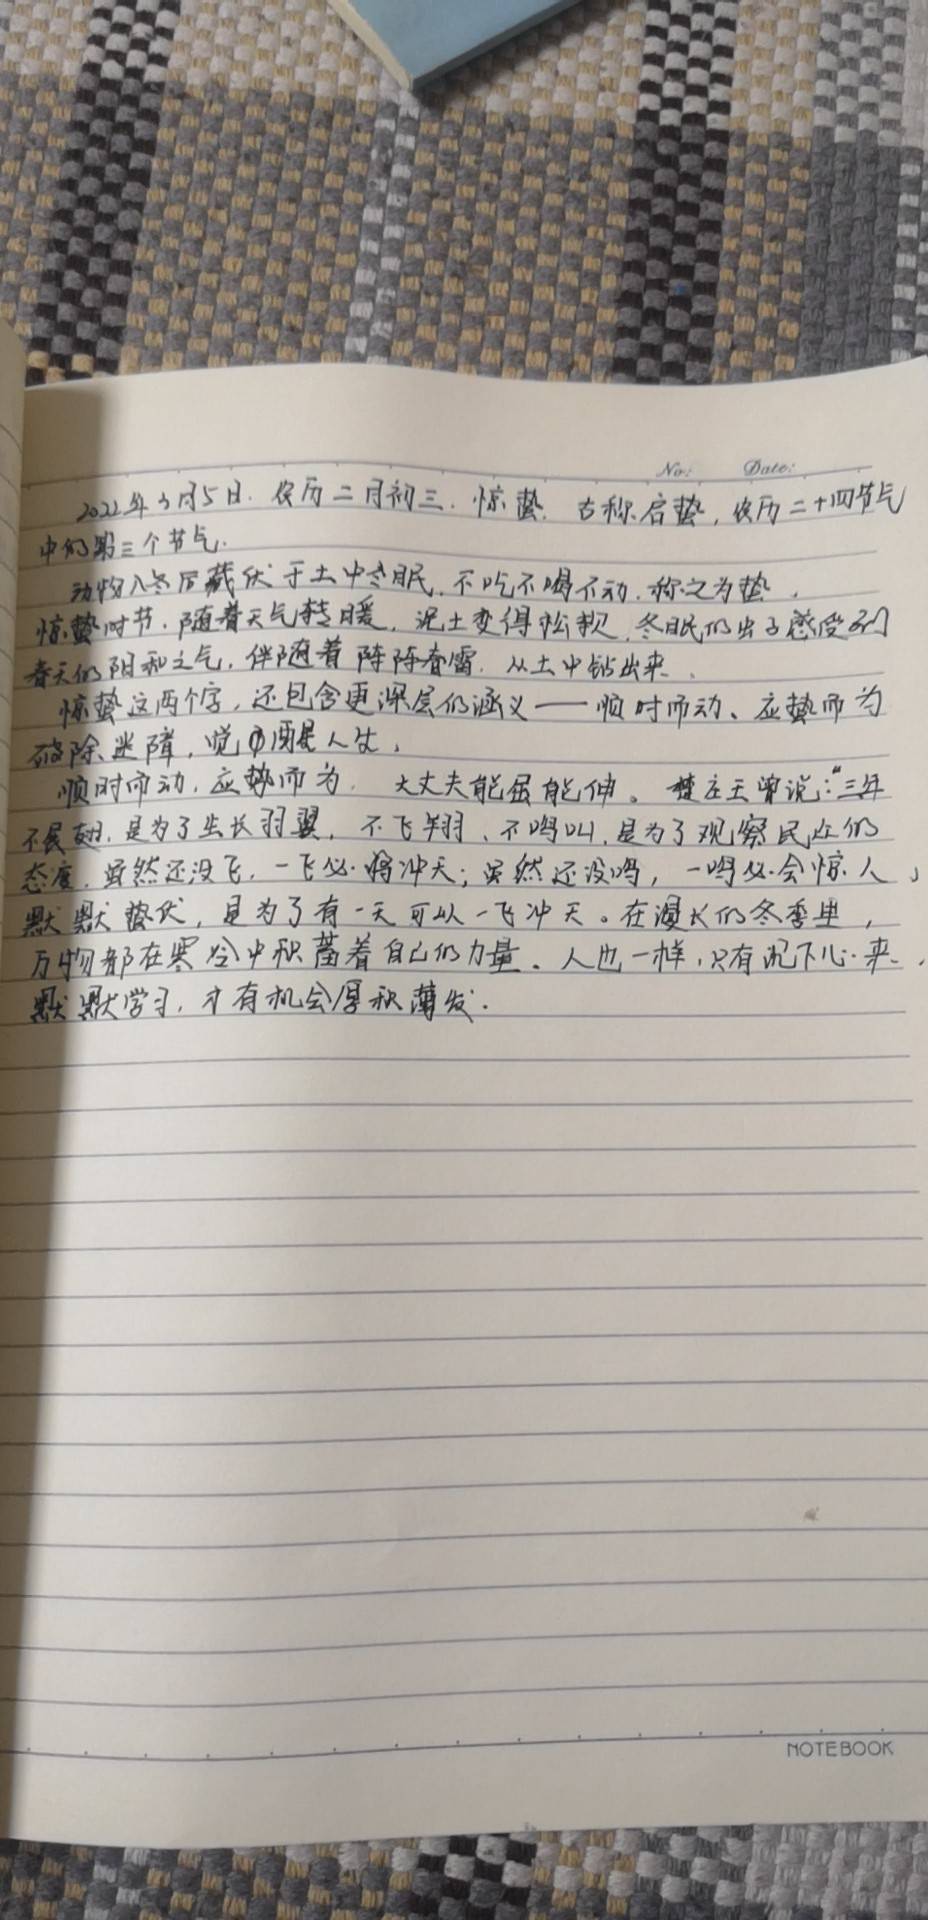 No: Date:
2022年3月5日.农历二月初三.惊蛰.古称启蛰,农历二十四节气
中的第三个节气.
动物入冬后藏伏于土中冬眠,不吃不喝不动.称之为蛰.
惊蛰时节.随着天气转暖,泥土变得松软.冬眠的虫子感受到
春天的阳和之气,伴随着阵阵春雷.从土中钻出来.
惊蛰这两个字,还包含更深层的涵义——顺时而动、应蛰而为
破除迷障,觉 醒人生.
顺时而动,应势而为. 大丈夫能屈能伸。楚庄王曾说:“三年
不展翅,是为了生长羽翼,不飞翔、不鸣叫,是为了观察民众的
态度.虽然还没飞,一飞必将冲天;虽然还没鸣,一鸣必会惊人」
默默蛰伏,是为了有一天可以一飞冲天。在漫长的冬季里,
万物都在寒冷中积蓄着自己的力量。人也一样,只有沉下心来.
默默学习,才有机会厚积薄发.
NOTEBOOK